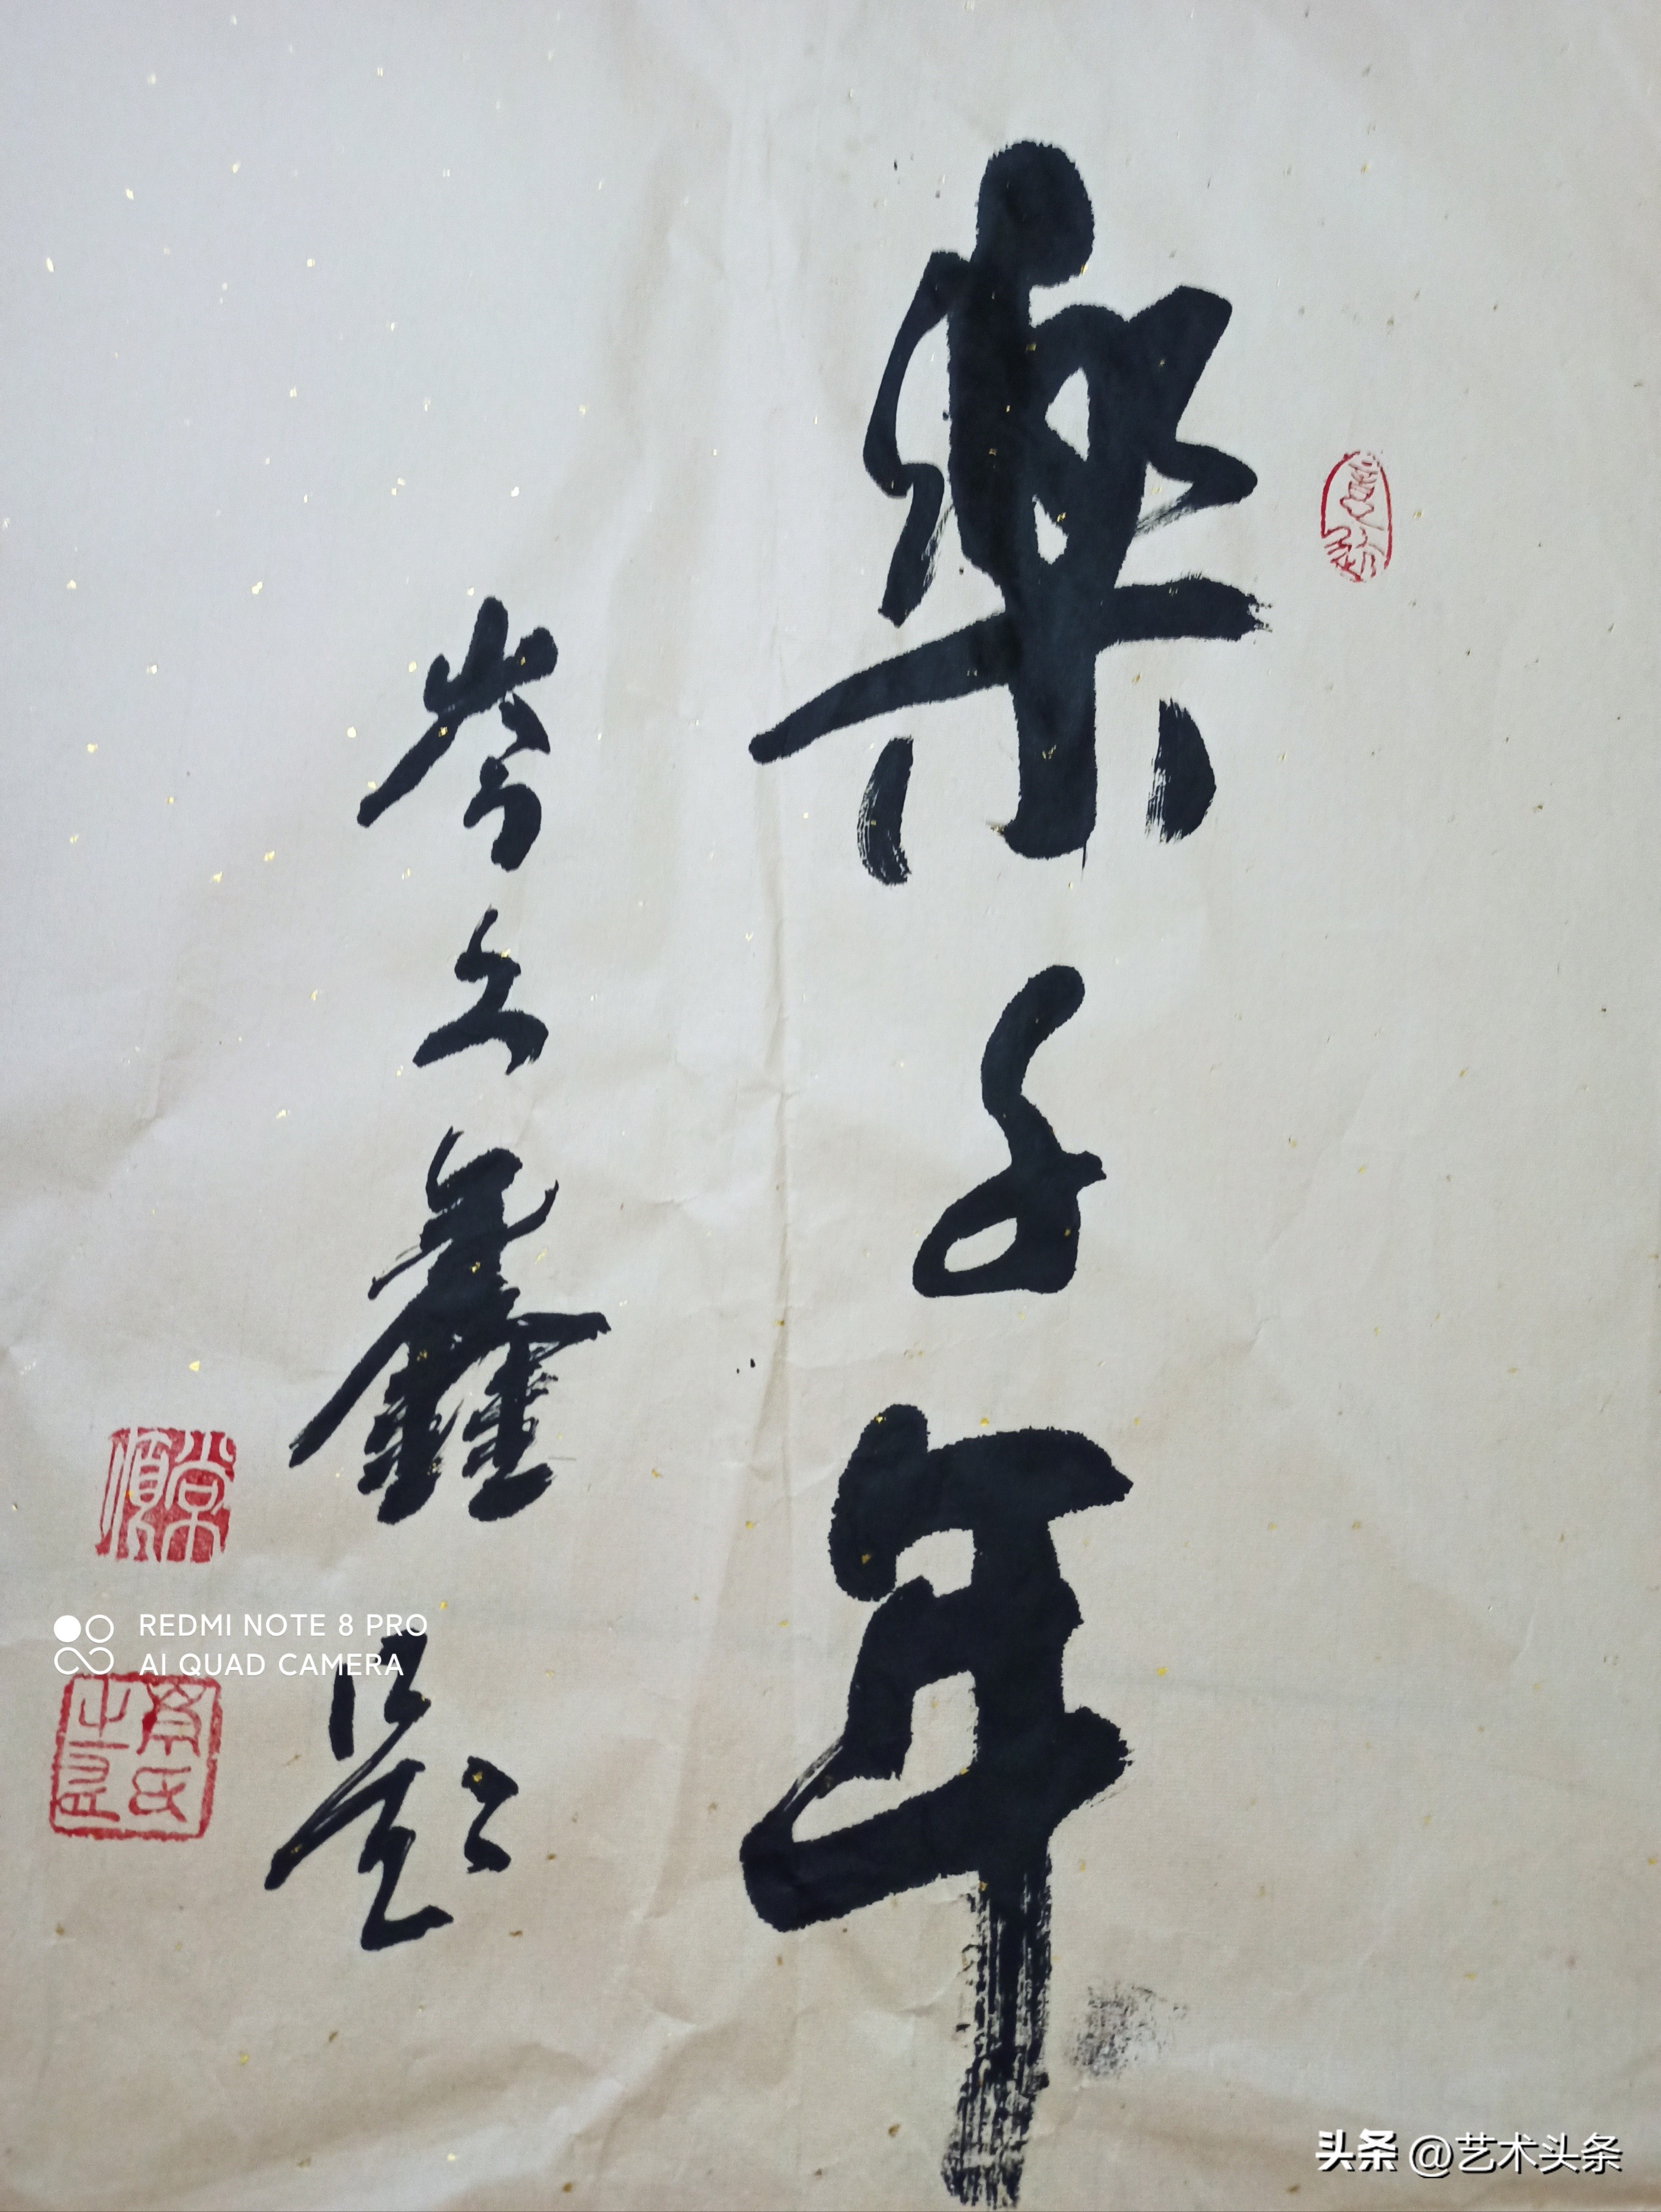 樂千年
岑久鑫题
常順
岑氏
REDMI NOTE 8 PRO
AI QUAD CAMERA
头条 @艺术头条